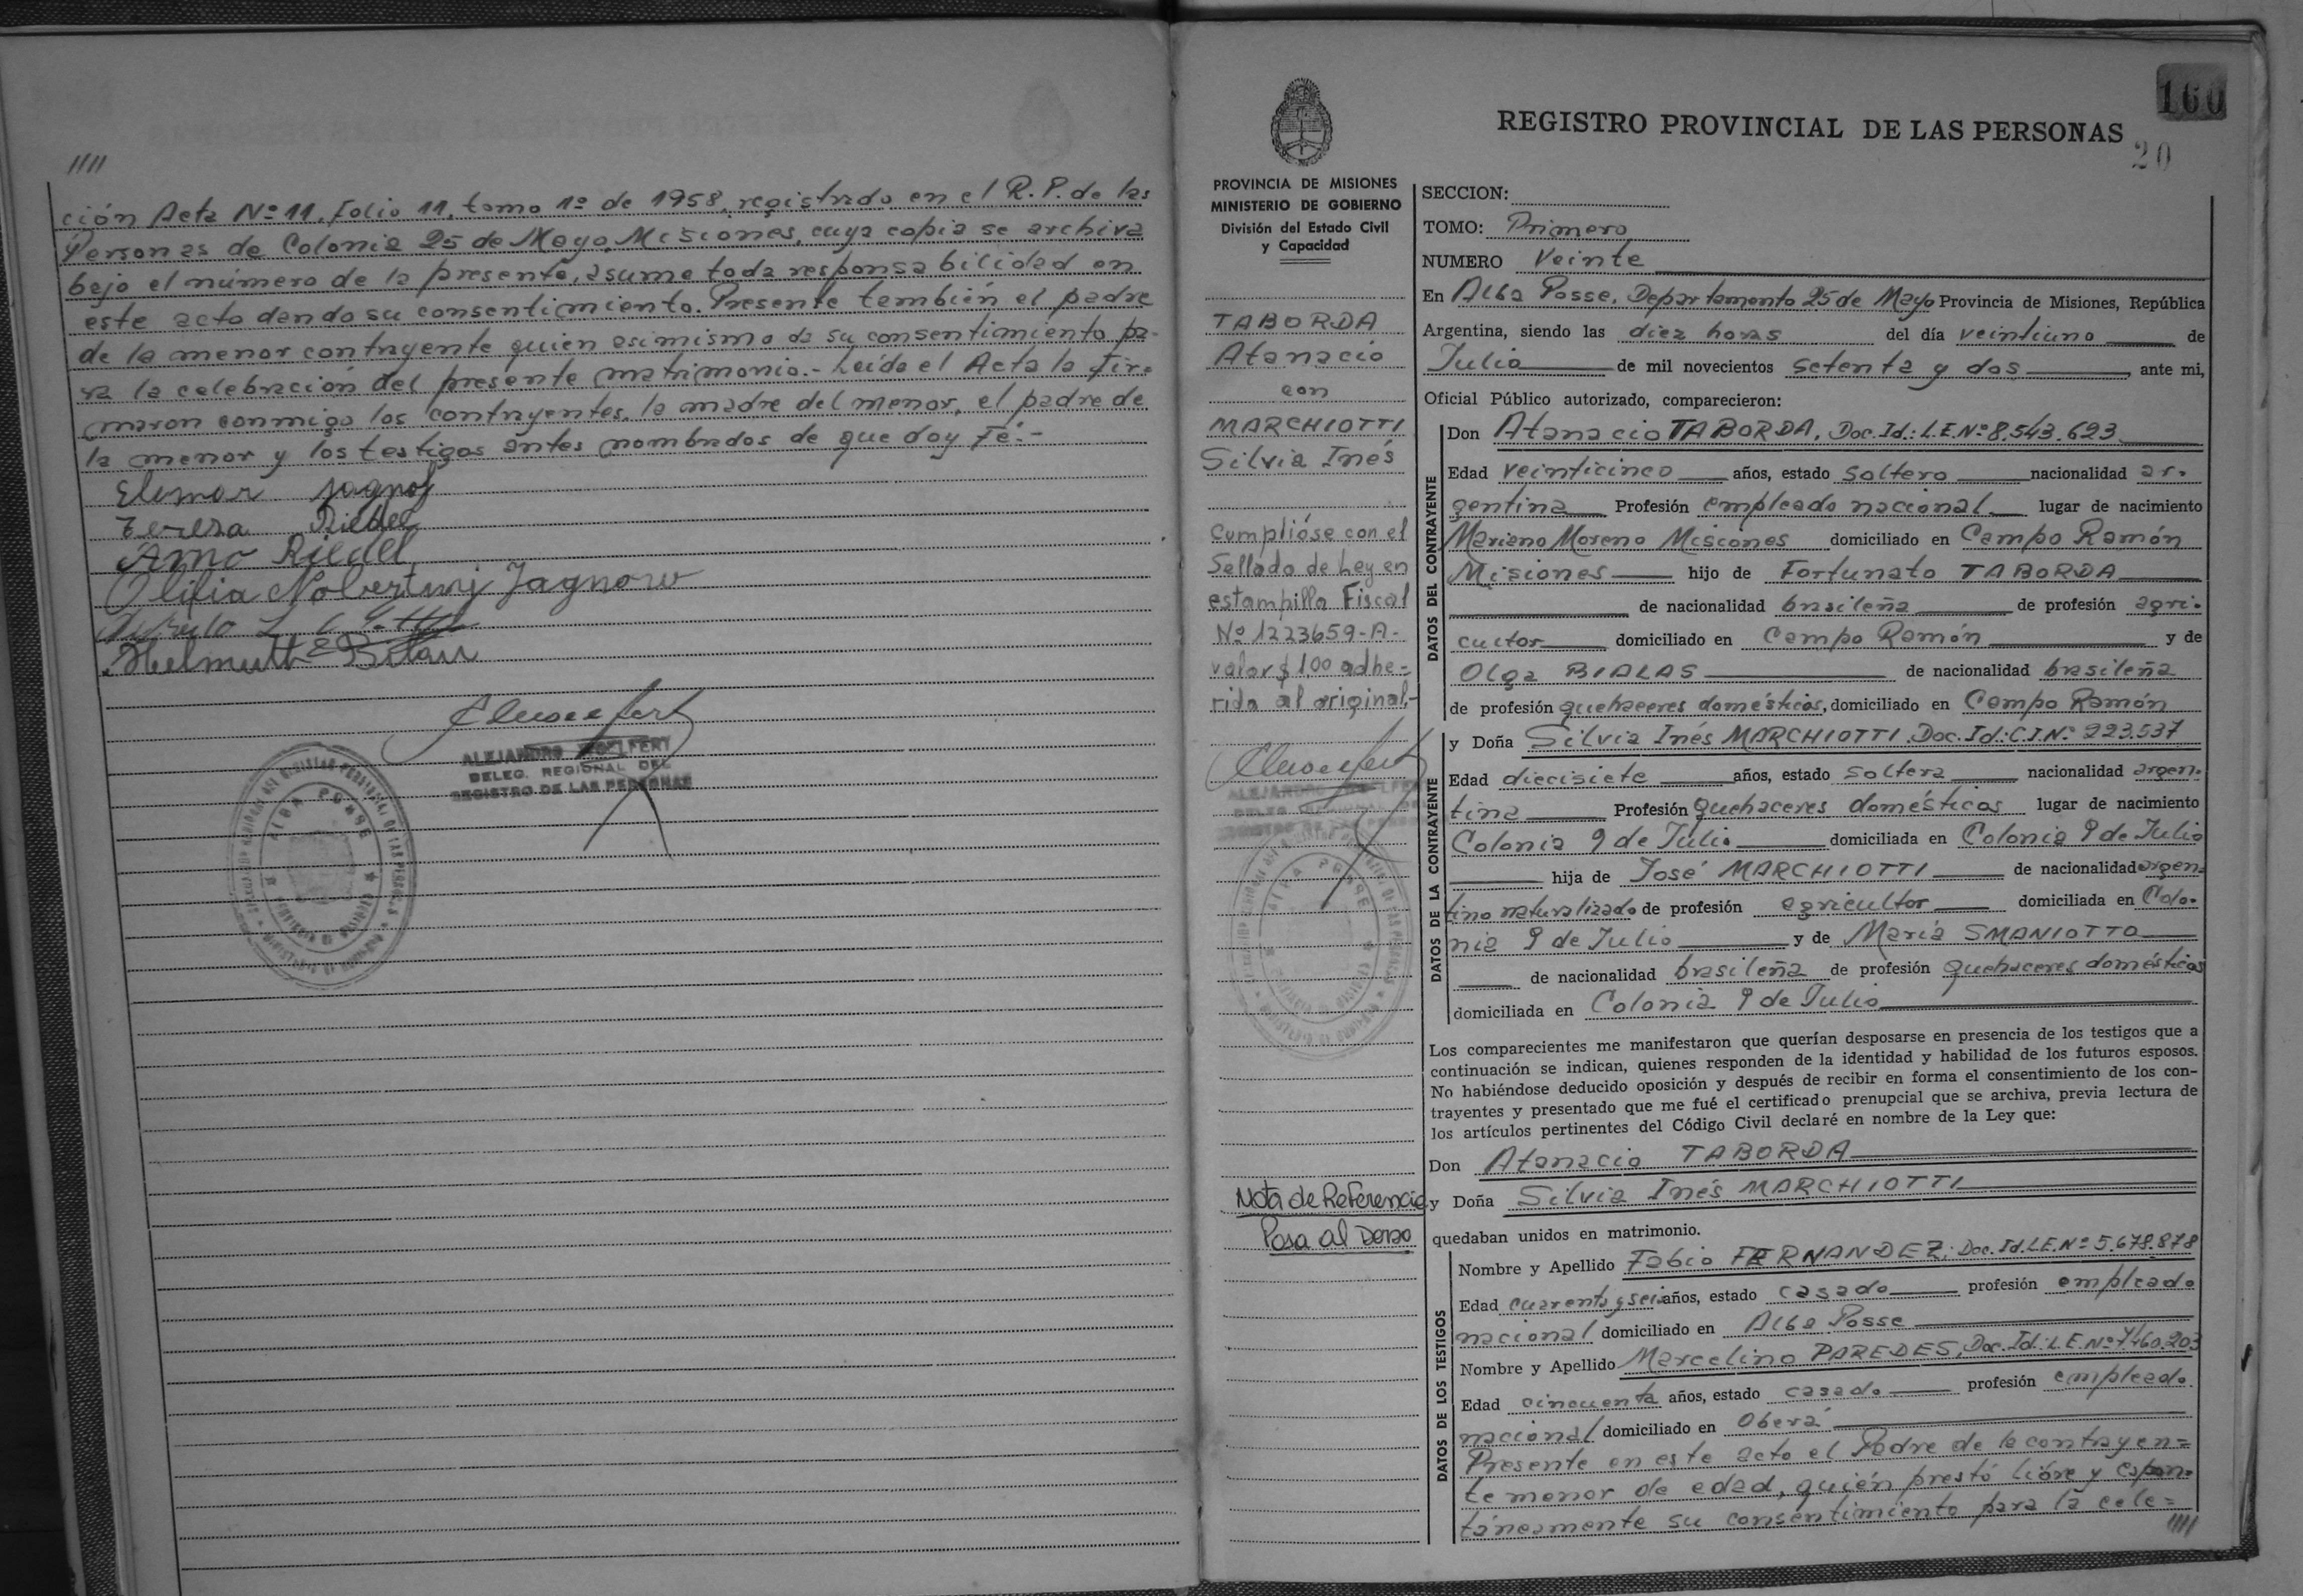 ////
ción Acta Nº 11, Folio 11, tomo 1º de 1958, registrado en el R.P. de las
Personas de Colonia 25 de Mayo, Misiones, cuya copia se archiva
bajo el número de la presente, asume toda responsabilidad en
este acto dando su consentimiento. Presente también el padre
de la menor contrayente quien asimismo da su consentimiento pa-
ra la celebración del presente matrimonio.- Leída el Acta la fir-
maron conmigo los contrayentes, la madre del menor, el padre de
la menor y los testigos antes nombrados de que doy Fé.-
Elemar Jagnow
Teresa Riedel
Arno Riedel
Olifia Jagnow
Helmuth E
ALEJANDRO
DELEG. REGIONAL DEL
REGISTRO DE LAS PERSONAS
ALBA POSSE
160
REGISTRO PROVINCIAL DE LAS PERSONAS
20
PROVINCIA DE MISIONES
MINISTERIO DE GOBIERNO
División del Estado Civil
y Capacidad
TABORDA
Atanacio
con
MARCHIOTTI
Silvia Inés
Cumplióse con el
Sellado de Ley en
estampilla Fiscal
Nº 1223659-A-
valor $ 1,00 adhe-
rida al original.-
Nota de Referencia
Pasa al Dorso
SECCION:
TOMO: Primero
NUMERO Veinte
En Alba Posse, Departamento 25 de Mayo Provincia de Misiones, República
Argentina, siendo las diez horas del día veintiuno de
Julio de mil novecientos setenta y dos, ante mi,
Oficial Público autorizado, comparecieron:
DATOS DEL CONTRAYENTE
Don Atanacio TABORDA, Doc. Id.: L.E. Nº 8.543.623
Edad veinticinco años, estado soltero nacionalidad ar-
gentina Profesión empleado nacional lugar de nacimiento
Mariano Moreno Misiones domiciliado en Campo Ramón
Misiones hijo de Fortunato TABORDA
de nacionalidad brasileña de profesión agri-
cultor domiciliado en Campo Ramón y de
Olga BIALAS de nacionalidad brasileña
de profesión quehaceres domésticos, domiciliado en Campo Ramón
DATOS DE LA CONTRAYENTE
y Doña Silvia Inés MARCHIOTTI. Doc. Id.: C.I. Nº 223.537
Edad diecisiete años, estado soltera nacionalidad argen-
tina Profesión quehaceres domésticos lugar de nacimiento
Colonia 9 de Julio domiciliada en Colonia 9 de Julio
hija de José MARCHIOTTI de nacionalidad argen-
tino naturalizado de profesión agricultor domiciliada en Colo-
nia 9 de Julio y de María SMANIOTTO
de nacionalidad brasileña de profesión quehaceres domésticos
domiciliada en Colonia 9 de Julio
Los comparecientes me manifestaron que querían desposarse en presencia de los testigos que a
continuación se indican, quienes responden de la identidad y habilidad de los futuros esposos.
No habiéndose deducido oposición y después de recibir en forma el consentimiento de los con-
trayentes y presentado que me fué el certificado prenupcial que se archiva, previa lectura de
los artículos pertinentes del Código Civil declaré en nombre de la Ley que:
Don Atanacio TABORDA
y Doña Silvia Inés MARCHIOTTI
quedaban unidos en matrimonio.
DATOS DE LOS TESTIGOS
Nombre y Apellido Fabio FERNANDEZ; Doc. Id. L.E. Nº 5.678.878
Edad cuarenta y seis años, estado casado profesión empleado
nacional domiciliado en Alba Posse
Nombre y Apellido Marcelino PAREDES, Doc. Id.: L.E. Nº
Edad cincuenta años, estado casado profesión empleado
nacional domiciliado en Oberá
Presente en este acto el Padre de la contrayen-
te menor de edad, quién prestó libre y espon-
táneamente su consentimiento para la cele-
////